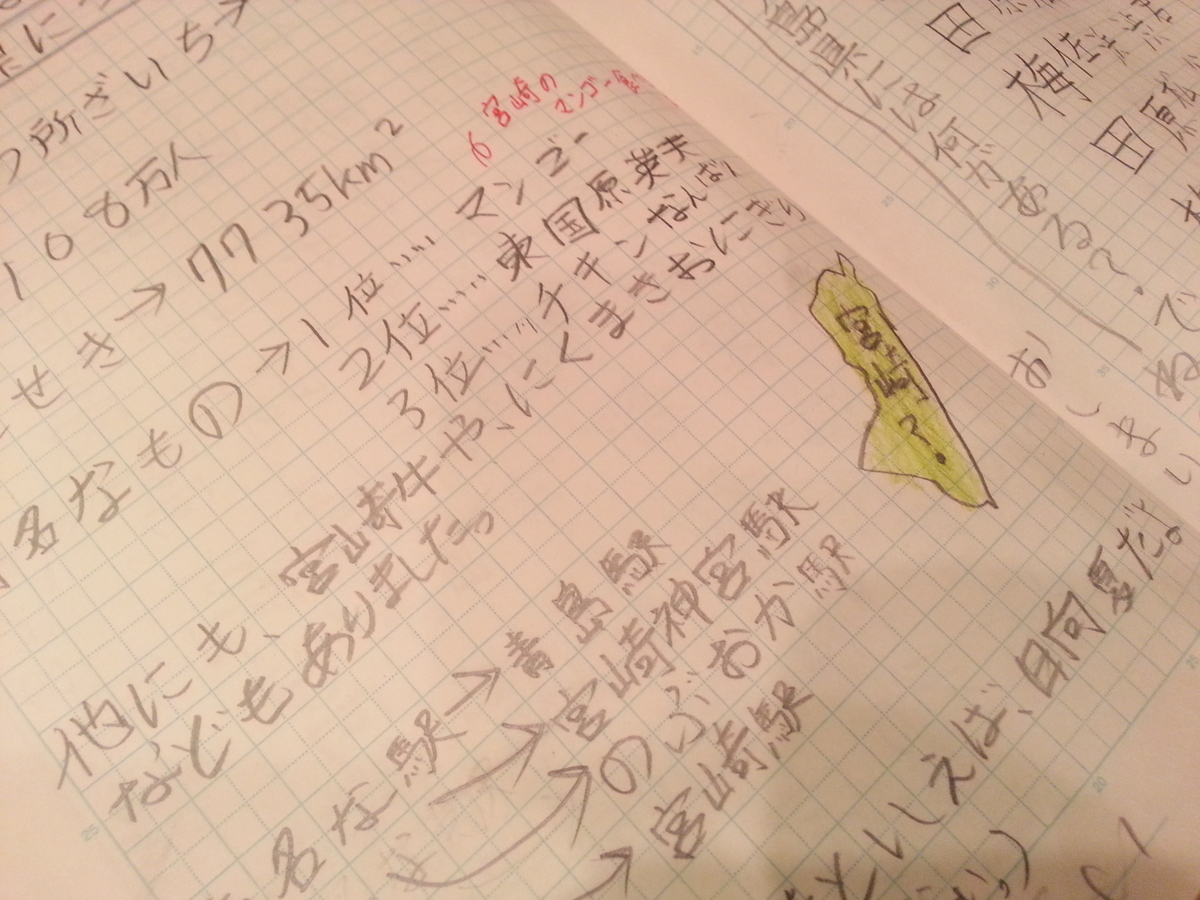 所ざいち→
108万人
せき→7735km²
宮崎の
マンゴー
名なもの→1位……マンゴー
2位……東国原英夫
3位……チキンなんばん
他にも、宮崎牛や、にくまきおにぎり
などもありましたっ
名な駅→青島駅
宮崎神宮駅
のぶおか駅
宮崎駅
といえば、日向夏だよ
宮崎?
島県には何がある?
田原
梅佐
田原